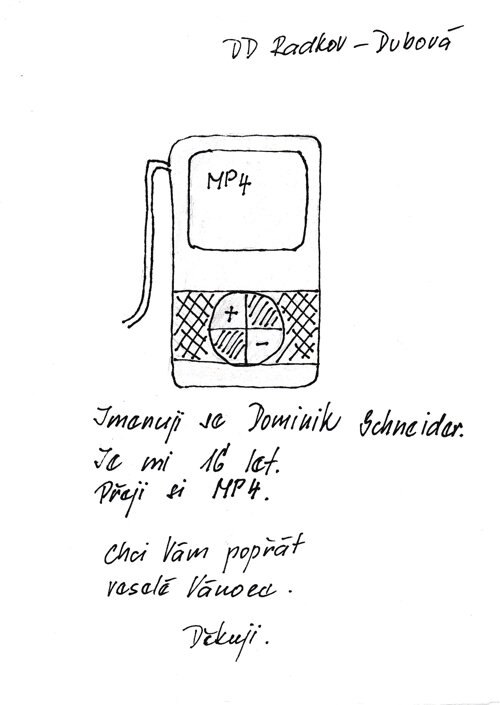 DD Radkov – Dubová
MP4
+
-
Jmenuji se Dominik Schneider.
Je mi 16 let.
Přeji si MP4.
Chci Vám popřát
veselé Vánoce.
Děkuji.